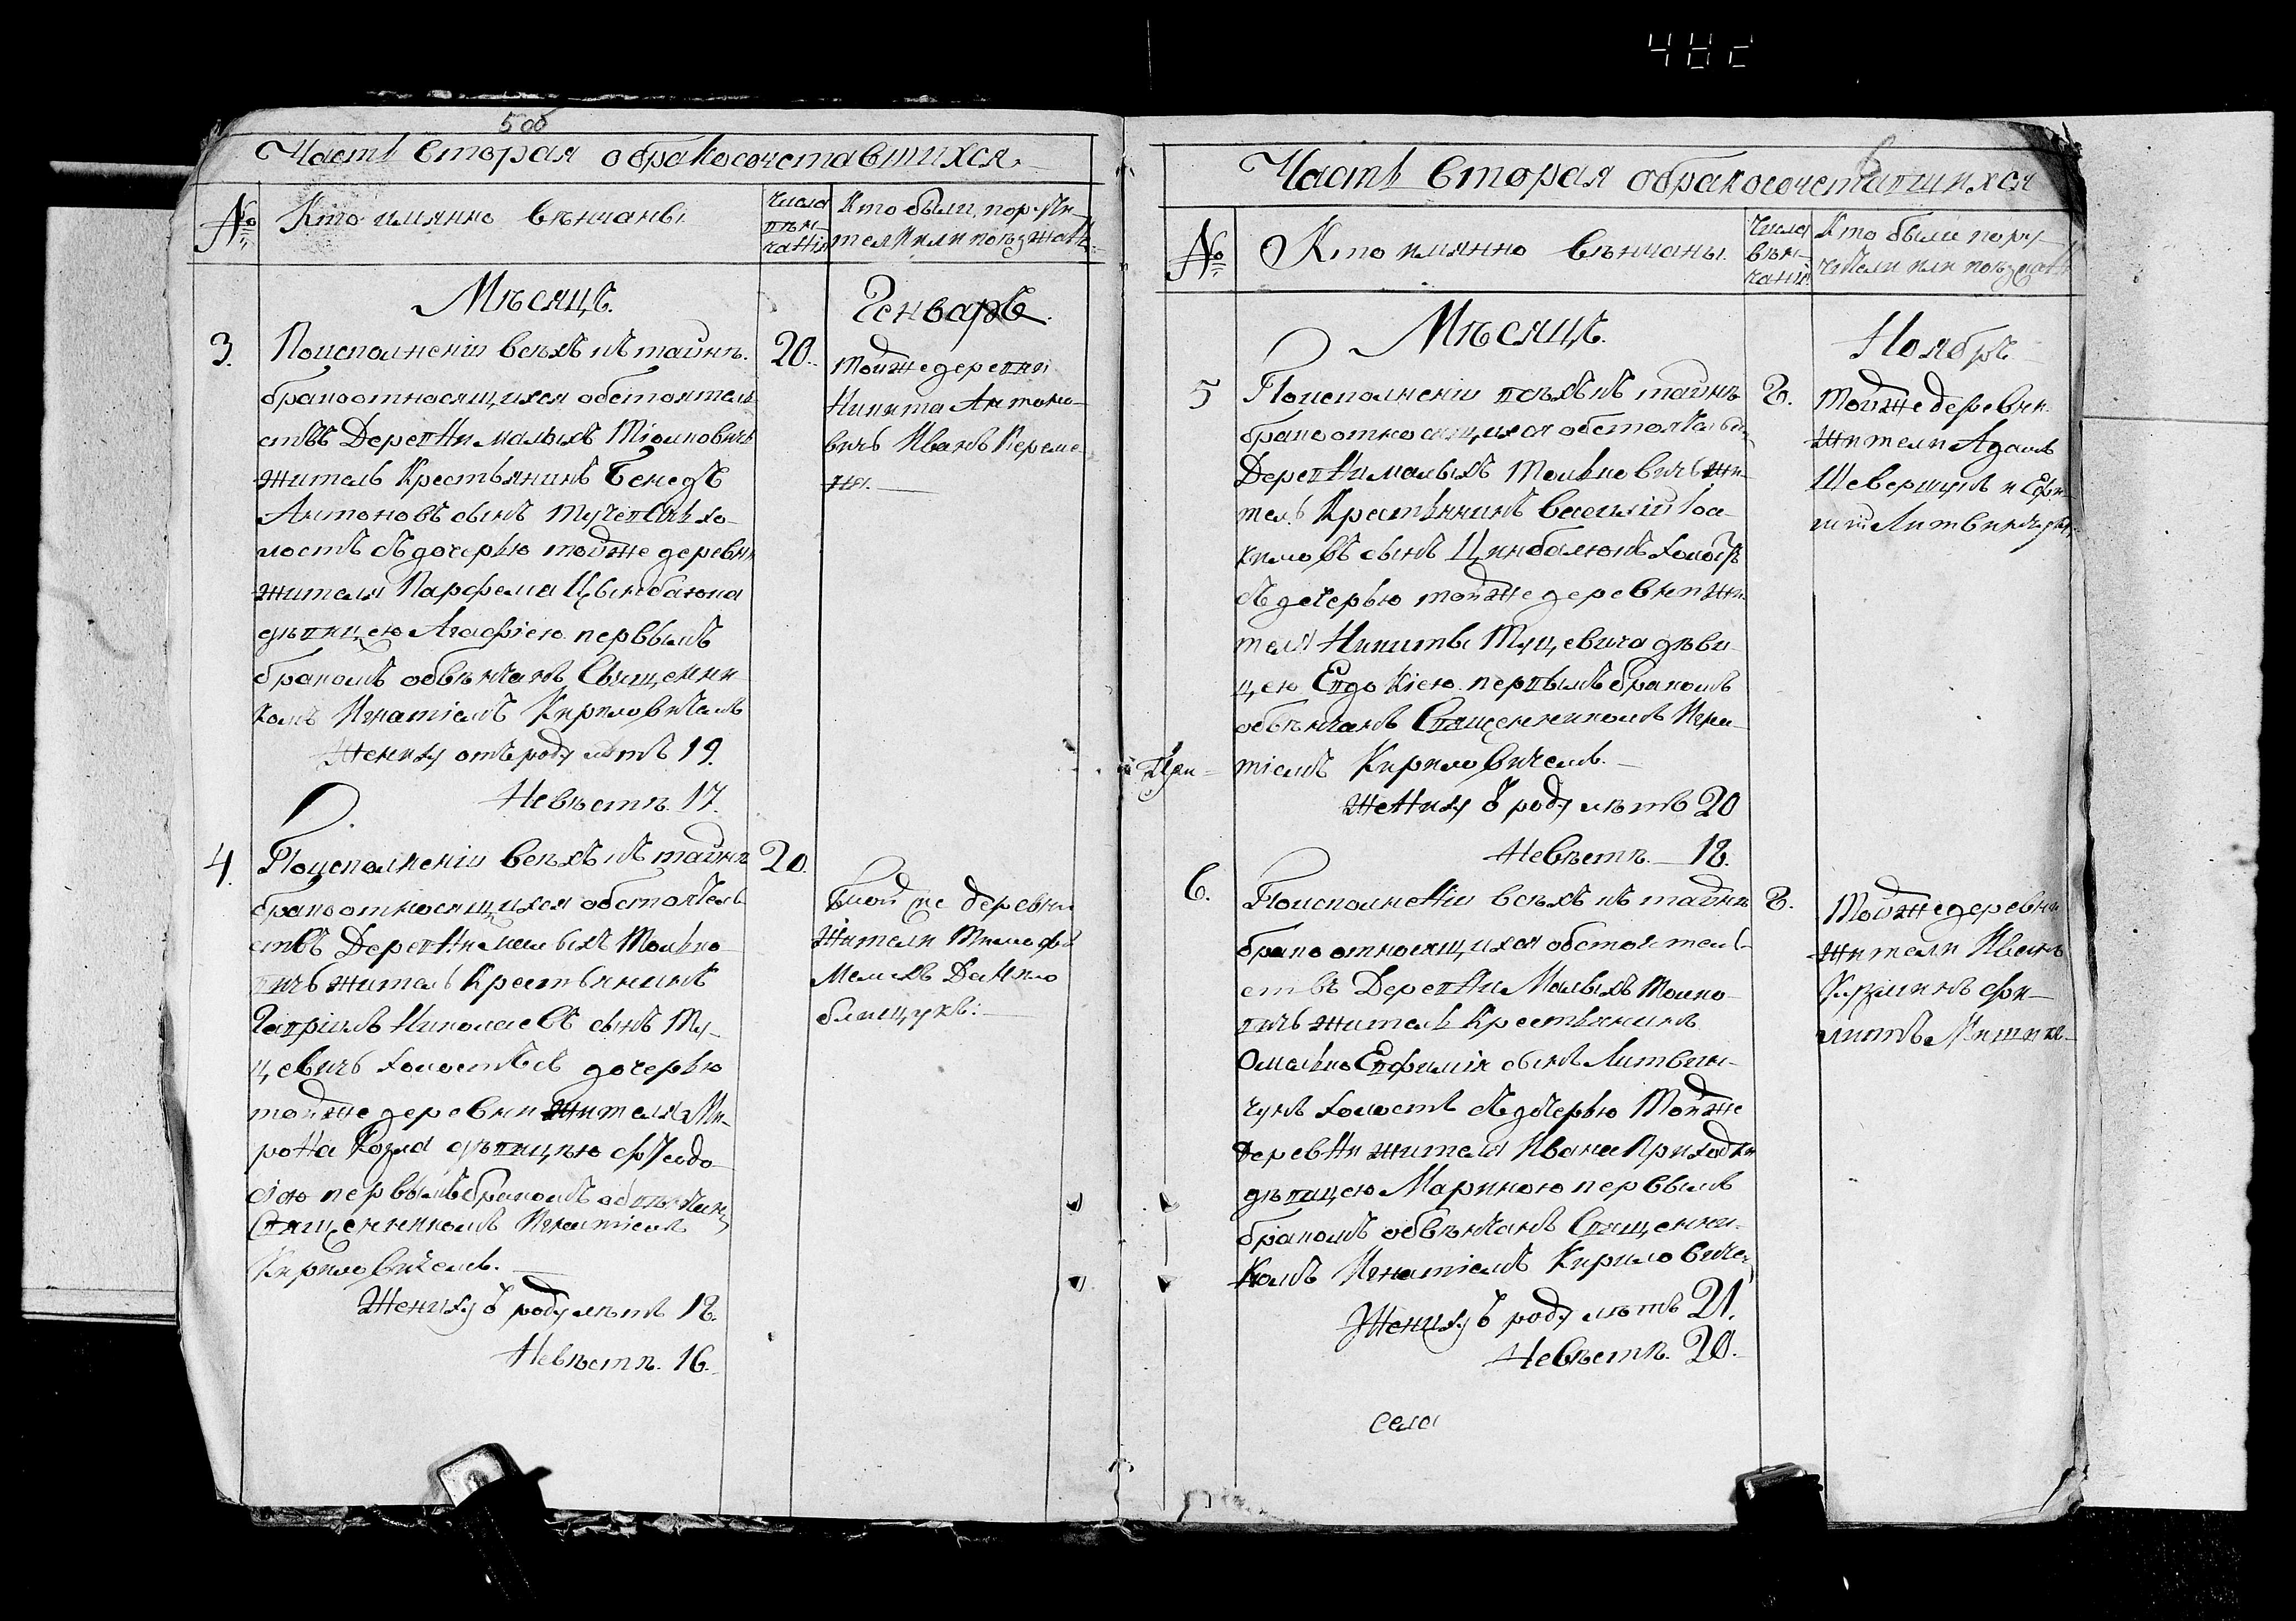 482
5 об
Часть вторая обракосочетавшихся.
№ Кто имянно вѣнчаны
Числа вѣн-чанія
Кто были поручи-
тели или поѣзжанѣ
Мѣсяцъ
Генварь
3. Поисполненіи всѣхъ къ тайнѣ
брака относящихся обстоятель
ствъ Деревни малыхъ
житель Крестьянинъ Бенедъ
Антоновъ сынъ хо-
лостъ съ дочерью тойже деревни
жителя Парфема Цымбалюка
дѣвицею Агафіею первымъ
бракомъ обвѣнчанъ Священни
комъ Игнатіемъ Кириловичемъ
Жениху отъ роду лѣтъ 19.
Невѣстѣ. 17.
20.
тойже деревни
Никита Антоно-
вичъ Иванъ
4. Поисполненіи всѣхъ къ тайнѣ
брака относящихся обстоятель
ствъ Деревни малыхъ
житель Крестьянинъ
Гавріилъ Николаевъ сынъ Му-
цевичъ холостъ съ дочерью
тойже деревни жителя Ми-
рона Козла дѣвицею Феодо
сіею первымъ бракомъ обвѣнчанъ
Священникомъ Игнатіемъ
Кириловичемъ.
Жениху отъ роду лѣтъ 18.
Невѣстѣ. 16.
20.
тойже деревни
Жители Тимофей
Данило
Часть вторая обракосочетавшихся
№ Кто имянно вѣнчаны.
Числа вѣн-чанія
Кто были пору-
чители или поѣзжанѣ
Мѣсяцъ.
Ноябрь
5 Поисполненіи всѣхъ къ тайнѣ
брака относящихся обстоятельств
Деревни малыхъ жи-
тель Крестьянинъ Василій Іоа-
кимовъ сынъ Цинбалюкъ холостъ
съ дочерью тойже деревни жи-
теля Никиты Муцевича дѣви-
цею Евдокіею первымъ бракомъ
обвѣнчанъ Священникомъ Игна-
тіемъ Кириловичемъ.
Жениху отъ роду лѣтъ 20
Невѣстѣ. 18.
8.
тойже деревни
жители Адамъ
и Ефи-
мій Литвинчукъ
6. Поисполненіи всѣхъ къ тайнѣ
брака относящихся обстоятель-
ствъ Деревни Малыхъ
житель Крестьянинъ
Омелько Евфиміи сынъ Литвин-
чукъ холостъ съ дочерью Тойже
деревни жителя Ивана Приходки
дѣвицею Мариною первымъ
бракомъ обвѣнчанъ Священни-
комъ Игнатіемъ Кириловиче
Жениху отъ роду лѣтъ 21.
Невѣстѣ. 20.
8.
Тойже деревни
жители Иванъ
села